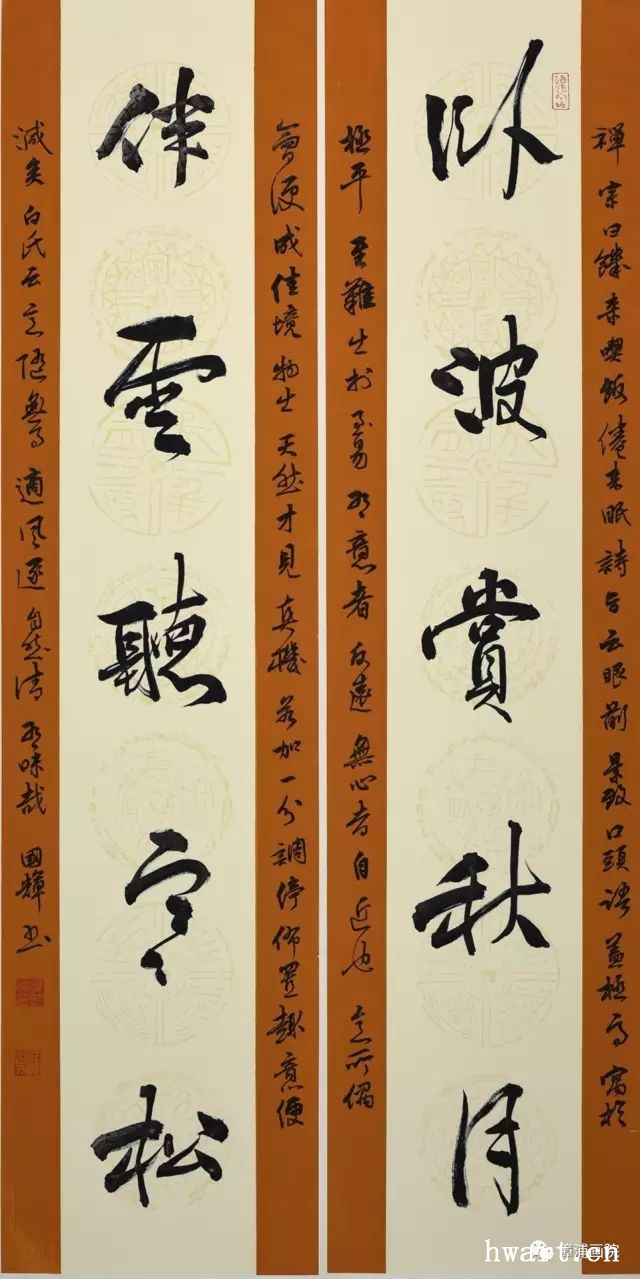 臥波賞秋月
伴雲聽寒松
禪宗曰饑來喫飯倦來眠詩旨云眼前景致口頭語蓋極高寓於
極平至難出於至易有意者反遠無心者自近也意所偶
會便成佳境物出天然才見真機若加一分調停佈置趣意便
減矣白氏云意隨無事適風逐自然清有味哉 國輝書
章浦画院
hwart.cn